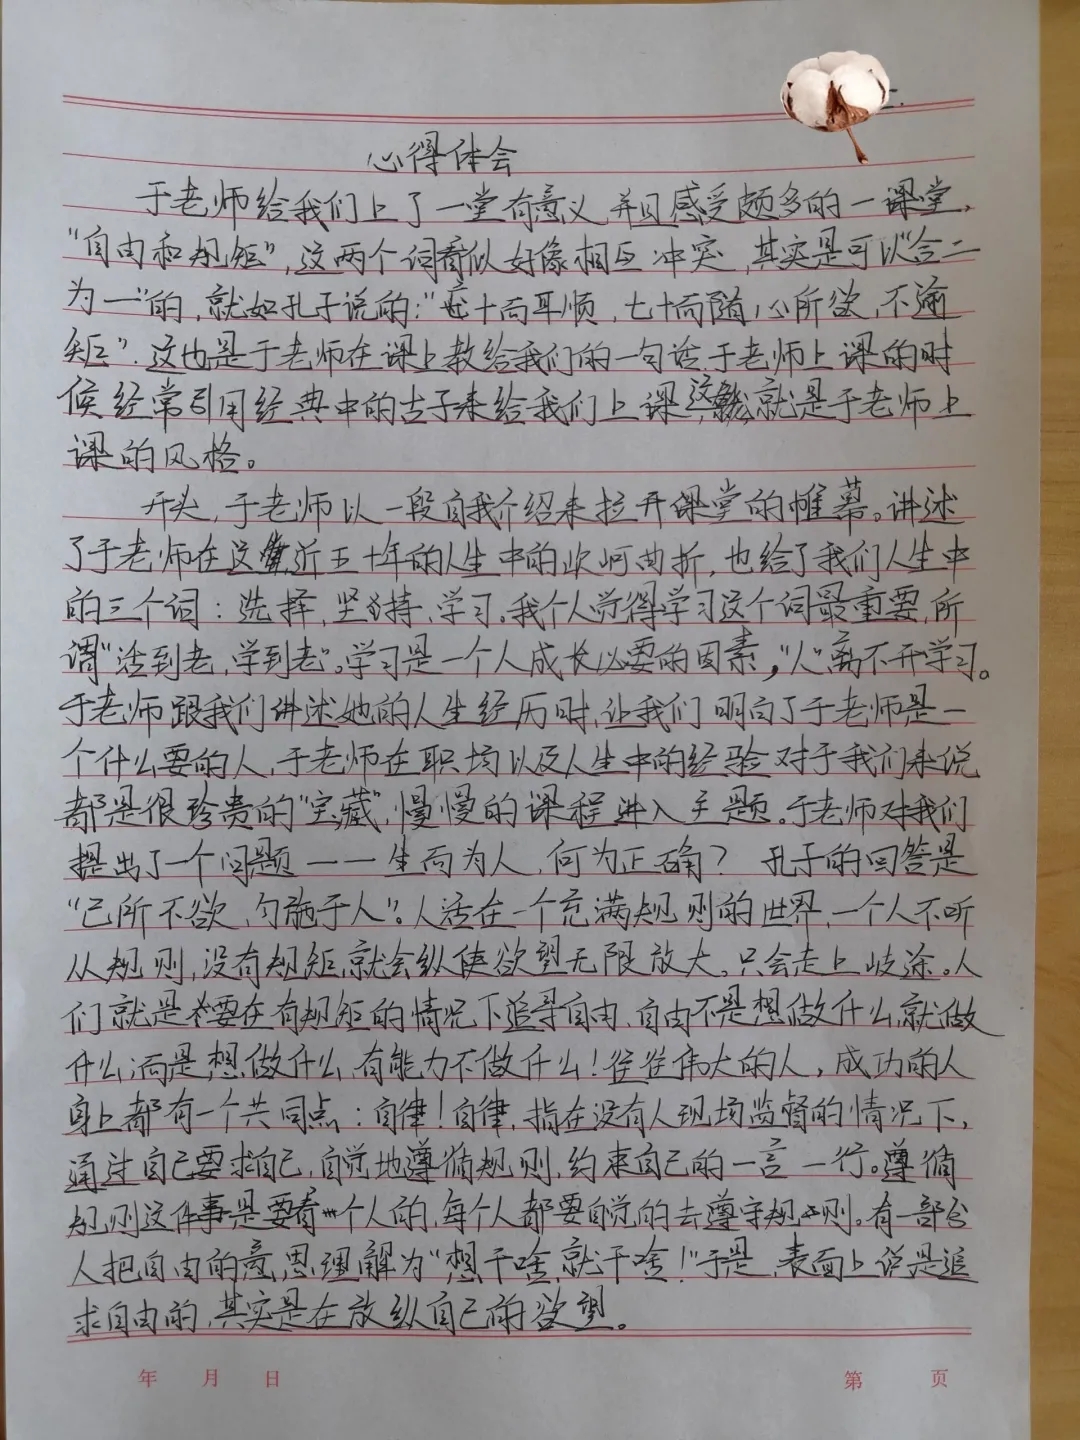 心得体会
于老师给我们上了一堂有意义并且感受颇多的一课堂,
“自由和规矩”,这两个词看似好像相互冲突,其实是可以“合二
为一”的,就如孔子说的:“六十而耳顺,七十而随心所欲,不逾
矩”.这也是于老师在课上教给我们的一句话.于老师上课的时
候经常引用经典中的古子来给我们上课,这就是于老师上
课的风格。
开头,于老师以一段自我介绍来拉开课堂的帷幕。讲述
了于老师在这近五十年的人生中的坎坷曲折,也给了我们人生中
的三个词:选择,坚持,学习。我个人觉得学习这个词最重要,所
谓“活到老,学到老”。学习是一个人成长必要的因素,“人”离不开学习。
于老师跟我们讲述她的人生经历时,让我们明白了于老师是一
个什么要的人,于老师在职场以及人生中的经验对于我们来说
都是很珍贵的“宝藏”,慢慢的课程进入主题。于老师对我们
提出了一个问题——生而为人,何为正确? 孔子的回答是
“己所不欲,勿施于人”。人活在一个充满规则的世界,一个人不听
从规则,没有规矩,就会纵使欲望无限放大,只会走上歧途。人
们就是要在有规矩的情况下追寻自由,自由不是想做什么,就做
什么;而是想做什么,有能力不做什么!往往伟大的人,成功的人
身上都有一个共同点:自律!自律,指在没有人现场监督的情况下,
通过自己要求自己,自觉地遵循规则,约束自己的一言一行。遵循
规则这件事是要看个人的,每个人都要自觉的去遵守规则。有一部分
人把自由的意思理解为“想干啥,就干啥!”于是,表面上说是追
求自由的,其实是在放纵自己的欲望。
年 月 日 第 页